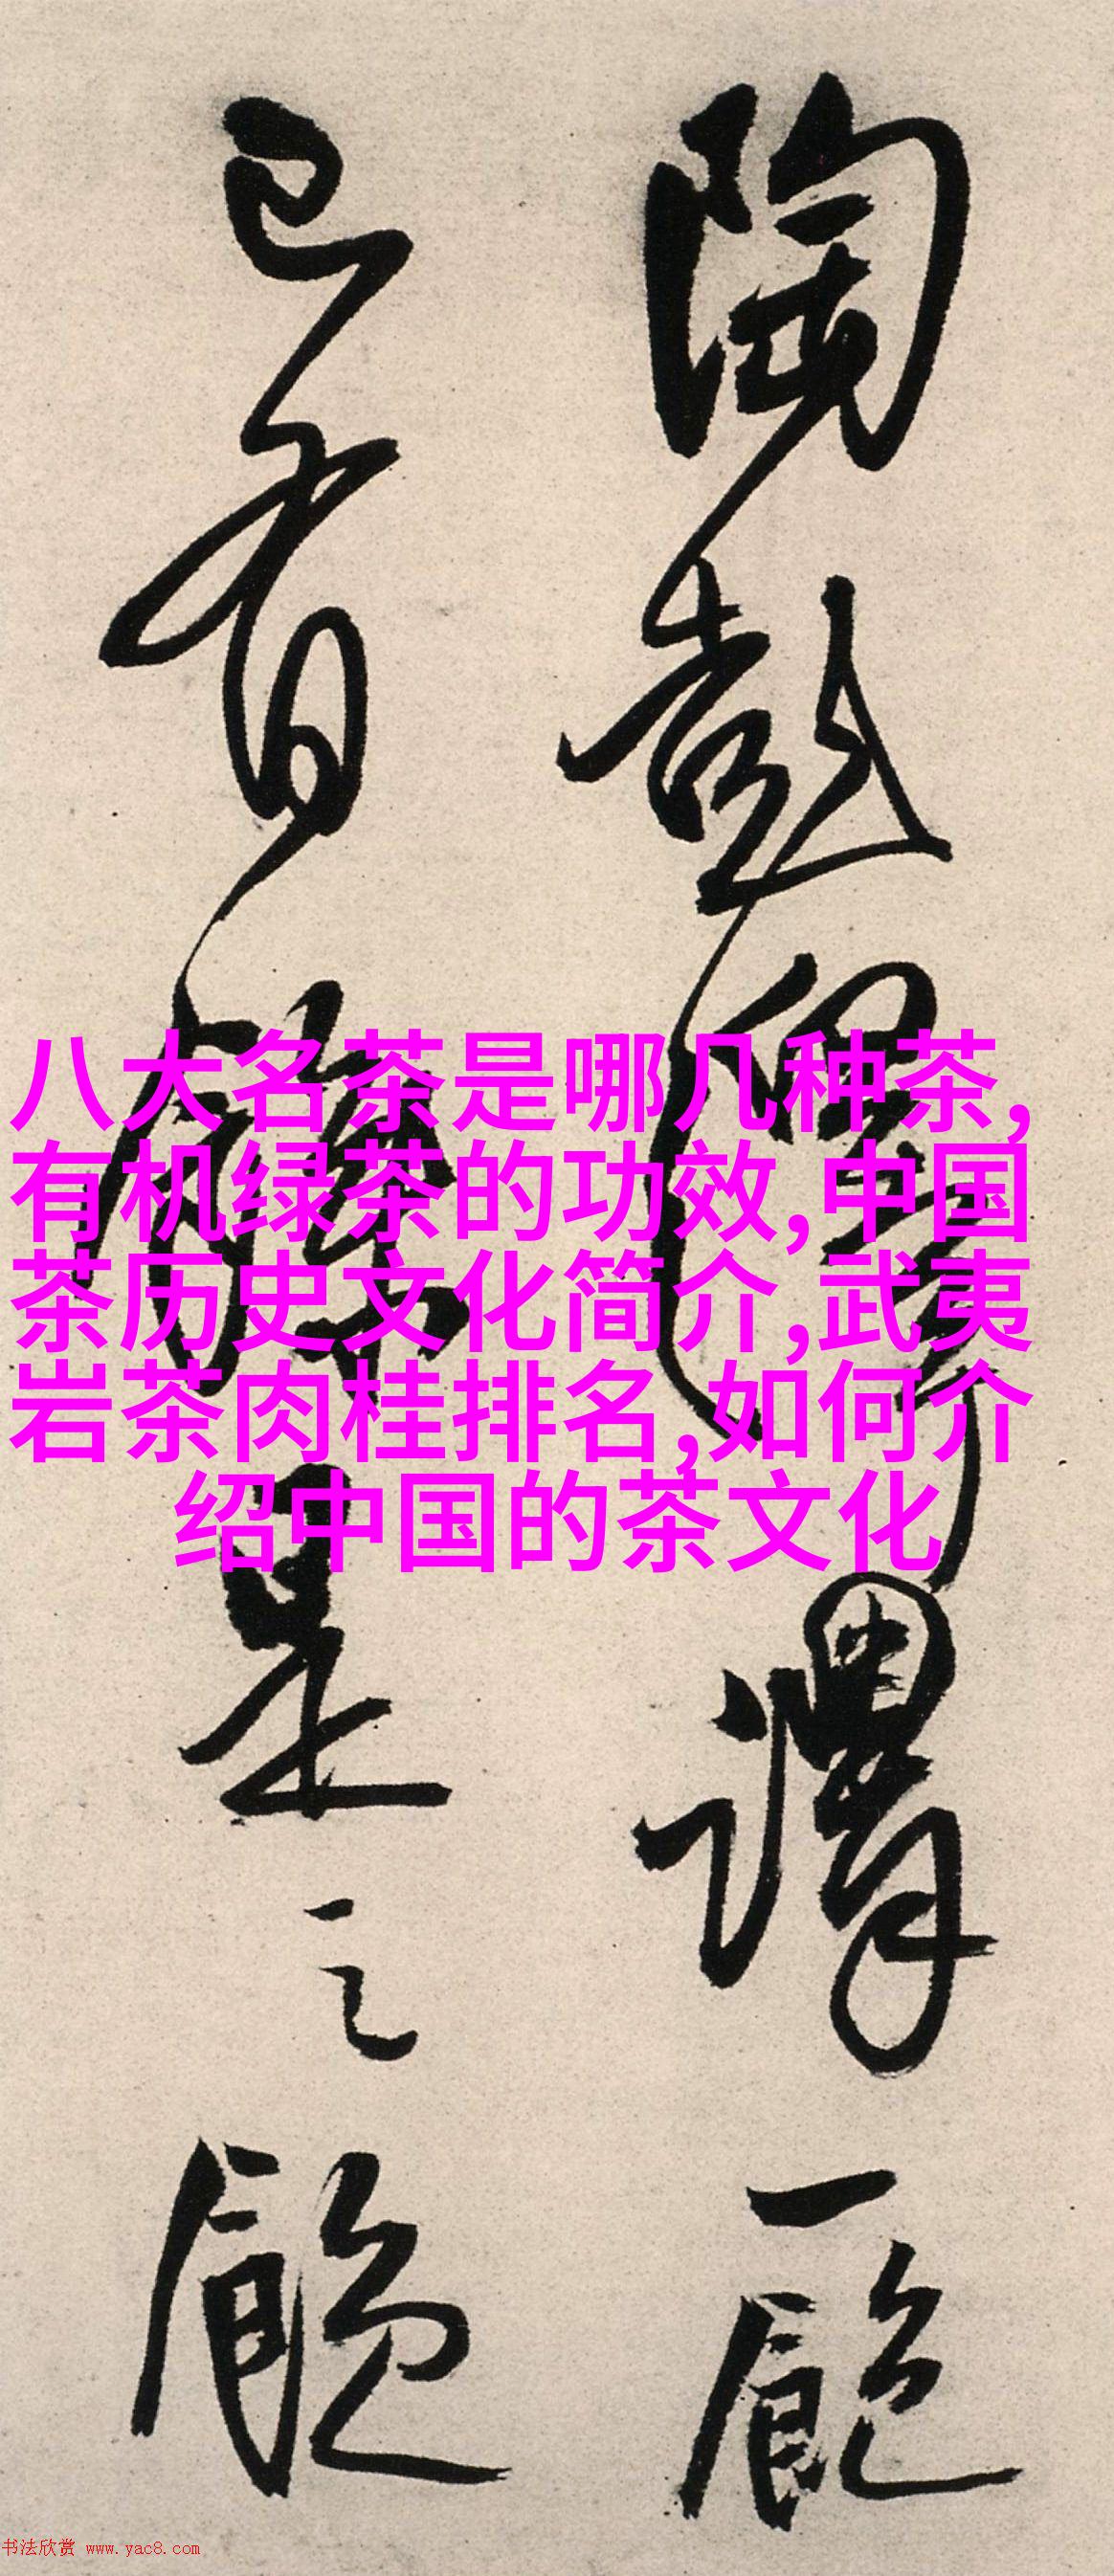 陶彭澤謂一飽
已有餘是之願
八大名茶是哪几种茶,
有机绿茶的功效,中国
茶历史文化简介,武夷
岩茶肉桂排名,如何介
绍中国的茶文化
书法欣赏 www.yac8.com